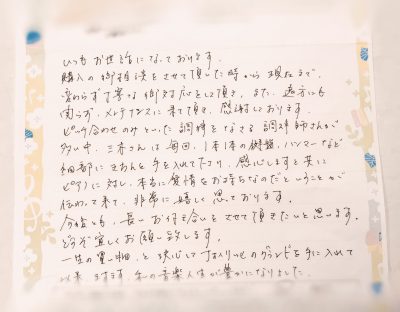 いつもお世話になっております。
購入の御相談をさせて頂いた時から現在まで、
変わらず丁寧な御対応をして頂き、また、遠方にも
関らず、メンテナンスに来て頂き、感謝しております。
ピッチ合わせのみといった調律をなさる調律師さんが
多い中、三木さんは毎回、1本1本の鍵盤、ハンマーなど
細部にきちんと手を入れて下さり、感心しますと共に
ピアノに対し、本当に愛情をお持ちなのだということが
伝わって来て、非常に嬉しく思っております。
今後も、長いお付き合いをさせて頂きたいと思います。
どうぞ宜しくお願い致します。
一生の買い物、と決心して のグランドを手に入れて
以来、ますます、私の音楽人生が豊かになりました。